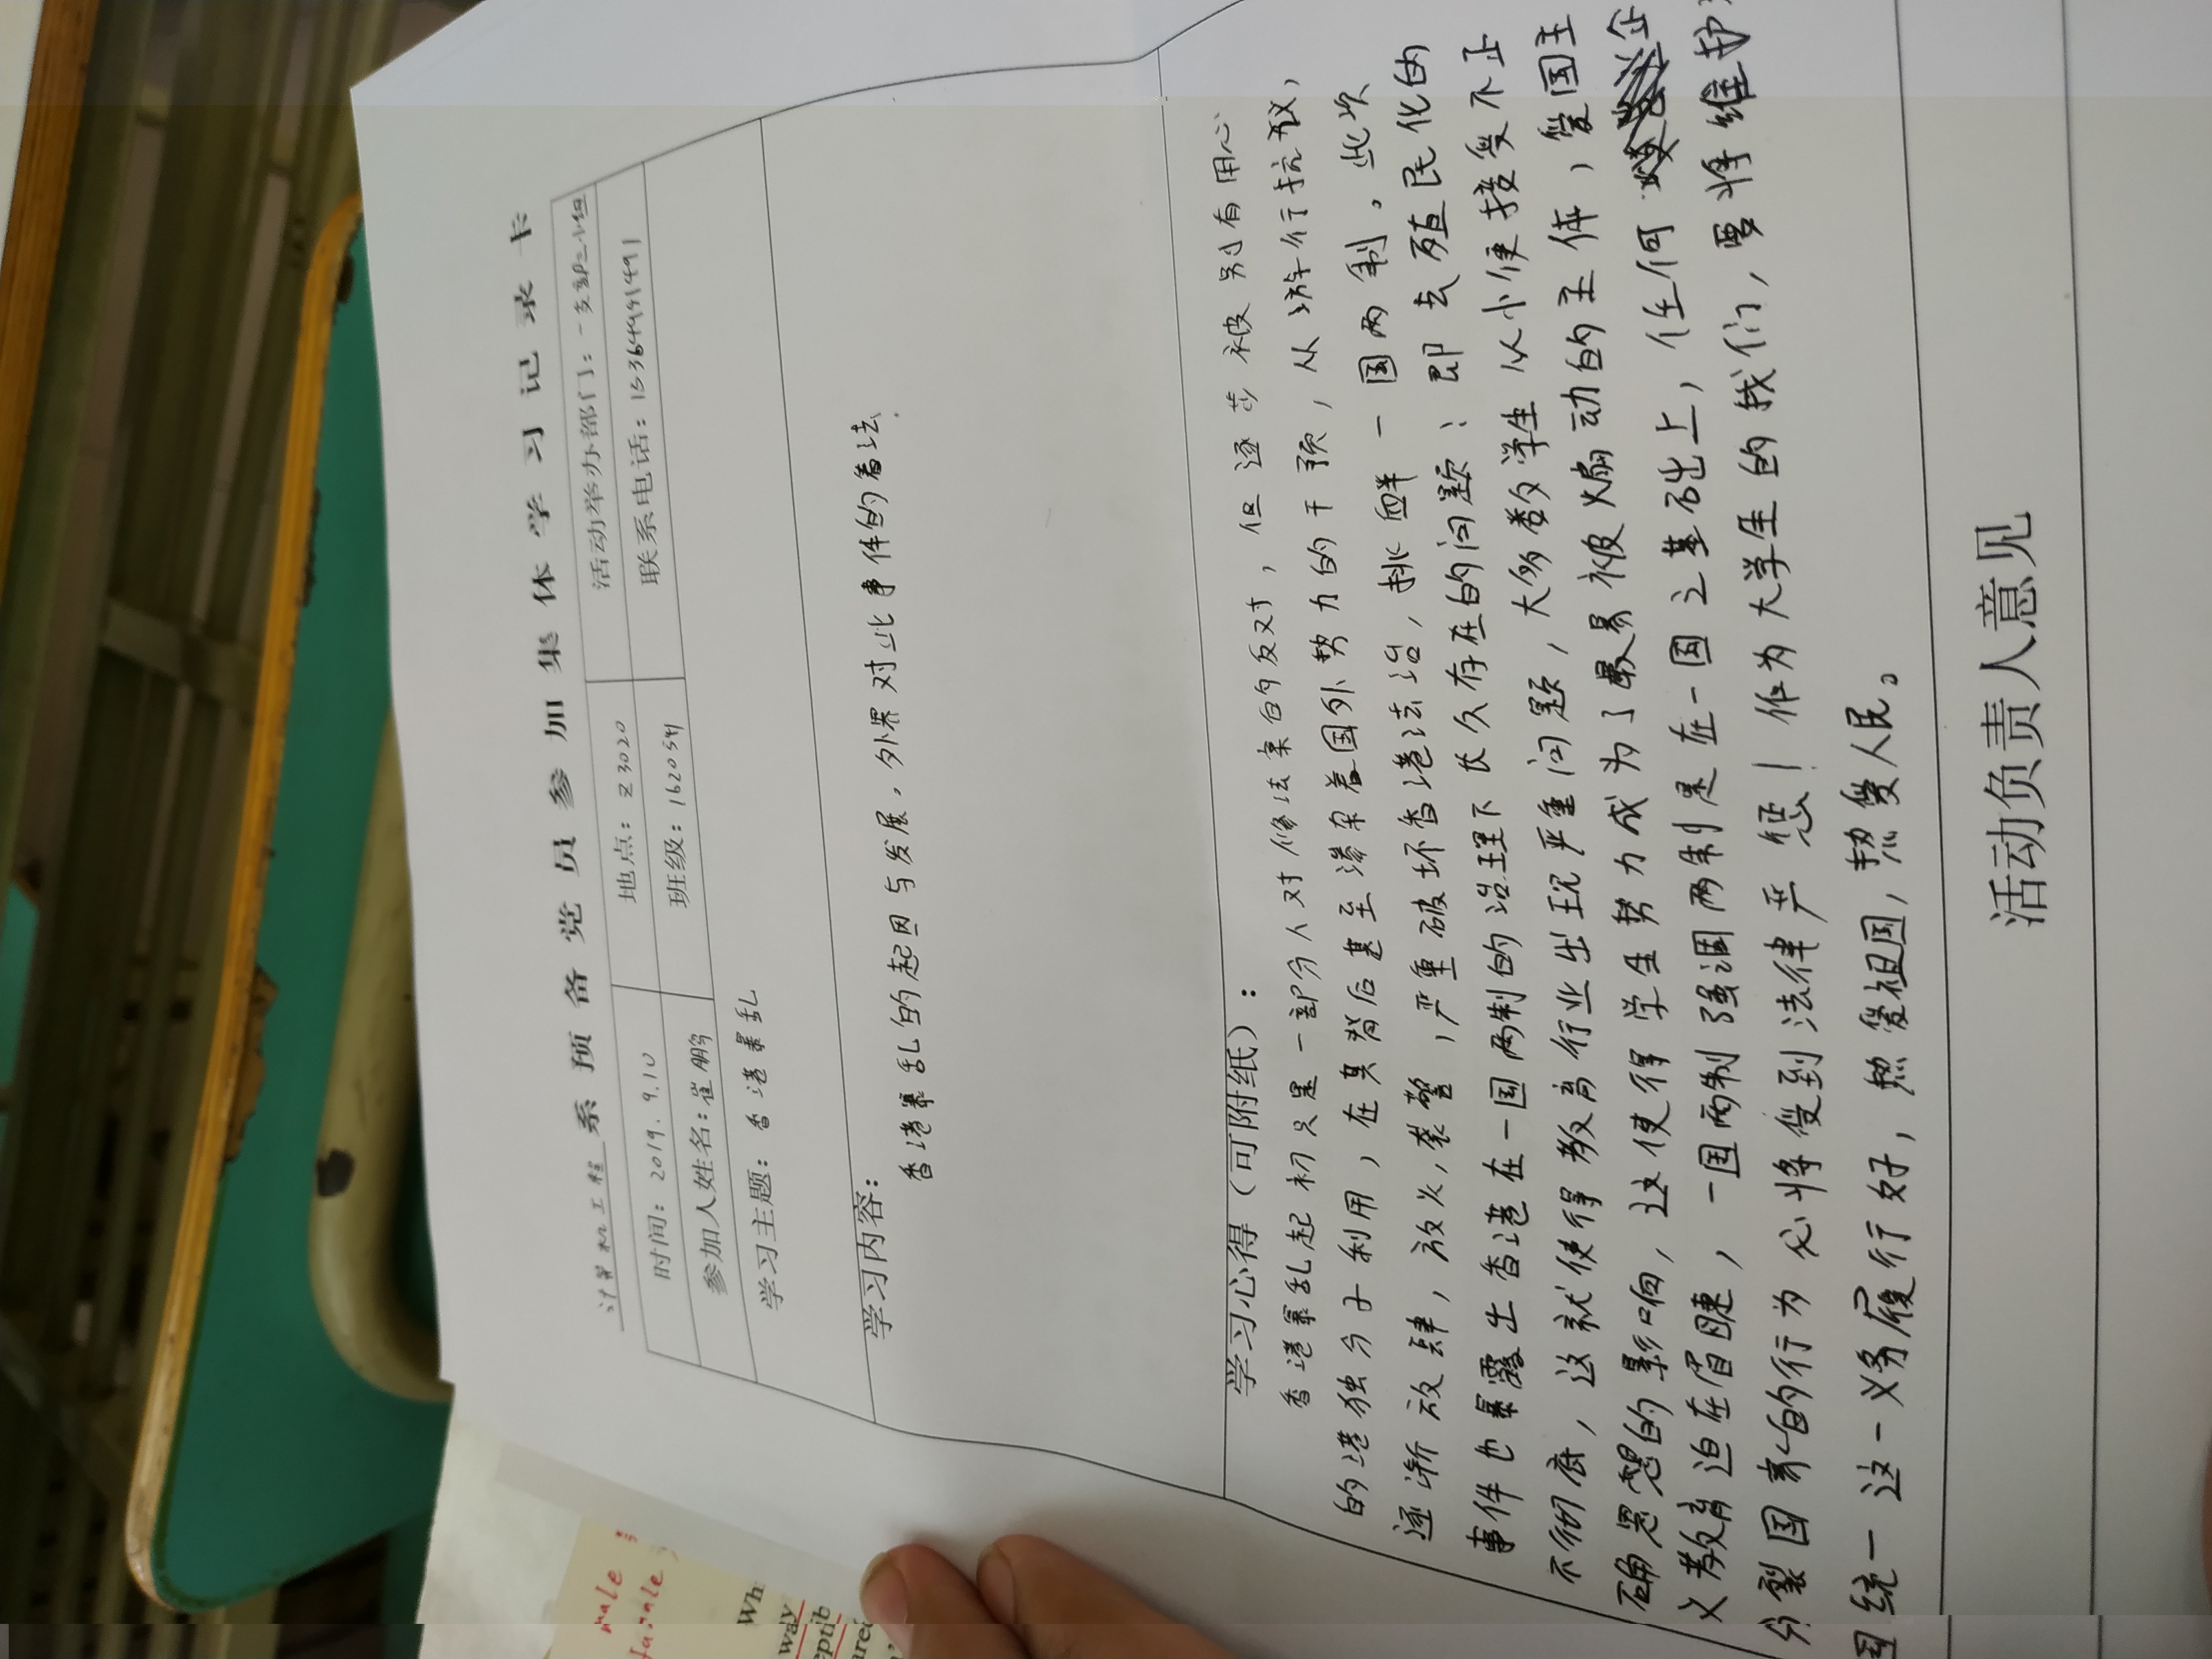 male
famale
Wh
way
epti
b
are
计算机工程 系预备党员参加集体学习记录卡
时间：2019.9.10 地点：Z3020 活动举办部门：一支部三小组
参加人姓名：崔鹏 班级：1620541 联系电话：15364991491
学习主题：香港暴乱
学习内容：
香港暴乱的起因与发展。外界对此事件的看法.
学习心得（可附纸）：
香港暴乱起初只是一部分人对修法案的反对，但逐步被别有用心
的港独分子利用，在其背后甚至渗杂着国外势力的干预，从游行抗议，
逐渐放肆，放火，袭警，严重破坏香港法治，挑衅一国两制。此次
事件也暴露出香港在一国两制的治理下长久存在的问题：即去殖民化的
不彻底，这就使得教育行业出现严重问题，大多数学生从小便接受不正
确思想的影响，这使得学生势力成为了最易被煽动的主体，爱国主
义教育迫在眉睫，一国两制强调两制是在一国之基础上，任何企
分裂国家的行为必将受到法律严惩！作为大学生的我们，要将维护
国统一这一义务履行好，热爱祖国，热爱人民。
活动负责人意见